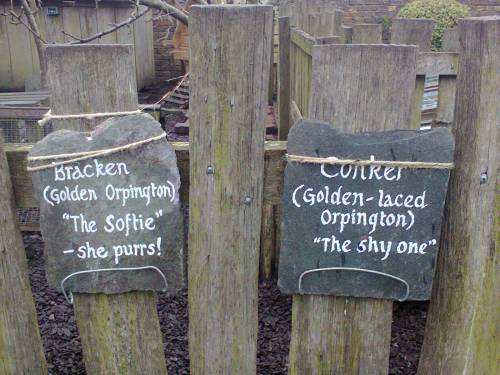 Bracken
(Golden Orpington)
"The Softie"
- she purrs!
Conker
(Golden-laced
Orpington)
"The shy one"